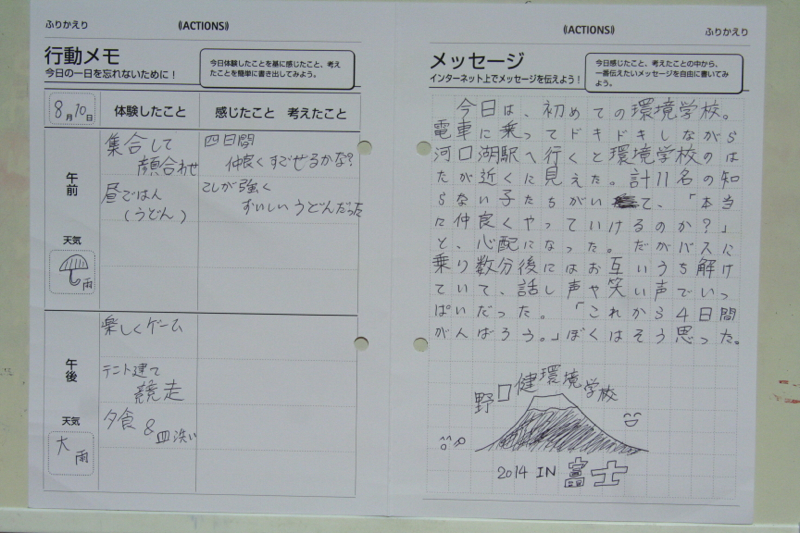 ふりかえり
《ACTIONS》
行動メモ
今日の一日を忘れないために!
今日体験したことを基に感じたこと、考え
たことを簡単に書き出してみよう。
8月10日
体験したこと
感じたこと 考えたこと
午前
天気
雨
集合して
顔合わせ
四日間
仲良くすごせるかな?
昼ごはん
(うどん)
こしが強く
おいしいうどんだった
午後
天気
大雨
楽しくゲーム
テント建て
競走
夕食&皿洗い
《ACTIONS》
ふりかえり
メッセージ
インターネット上でメッセージを伝えよう!
今日感じたこと、考えたことの中から、
一番伝えたいメッセージを自由に書いてみ
よう。
今日は、初めての環境学校。
電車に乗ってドキドキしながら
河口湖駅へ行くと環境学校のは
たが近くに見えた。計11名の知
らない子たちがいて、「本当
に仲良くやっていけるのか?」
と、心配になった。だがバスに
乗り数分後にはお互いうち解け
ていて、話し声や笑い声でいっ
ぱいだった。「これから4日間
がんばろう。」ぼくはそう思った。
野口健環境学校
2014 IN 富士